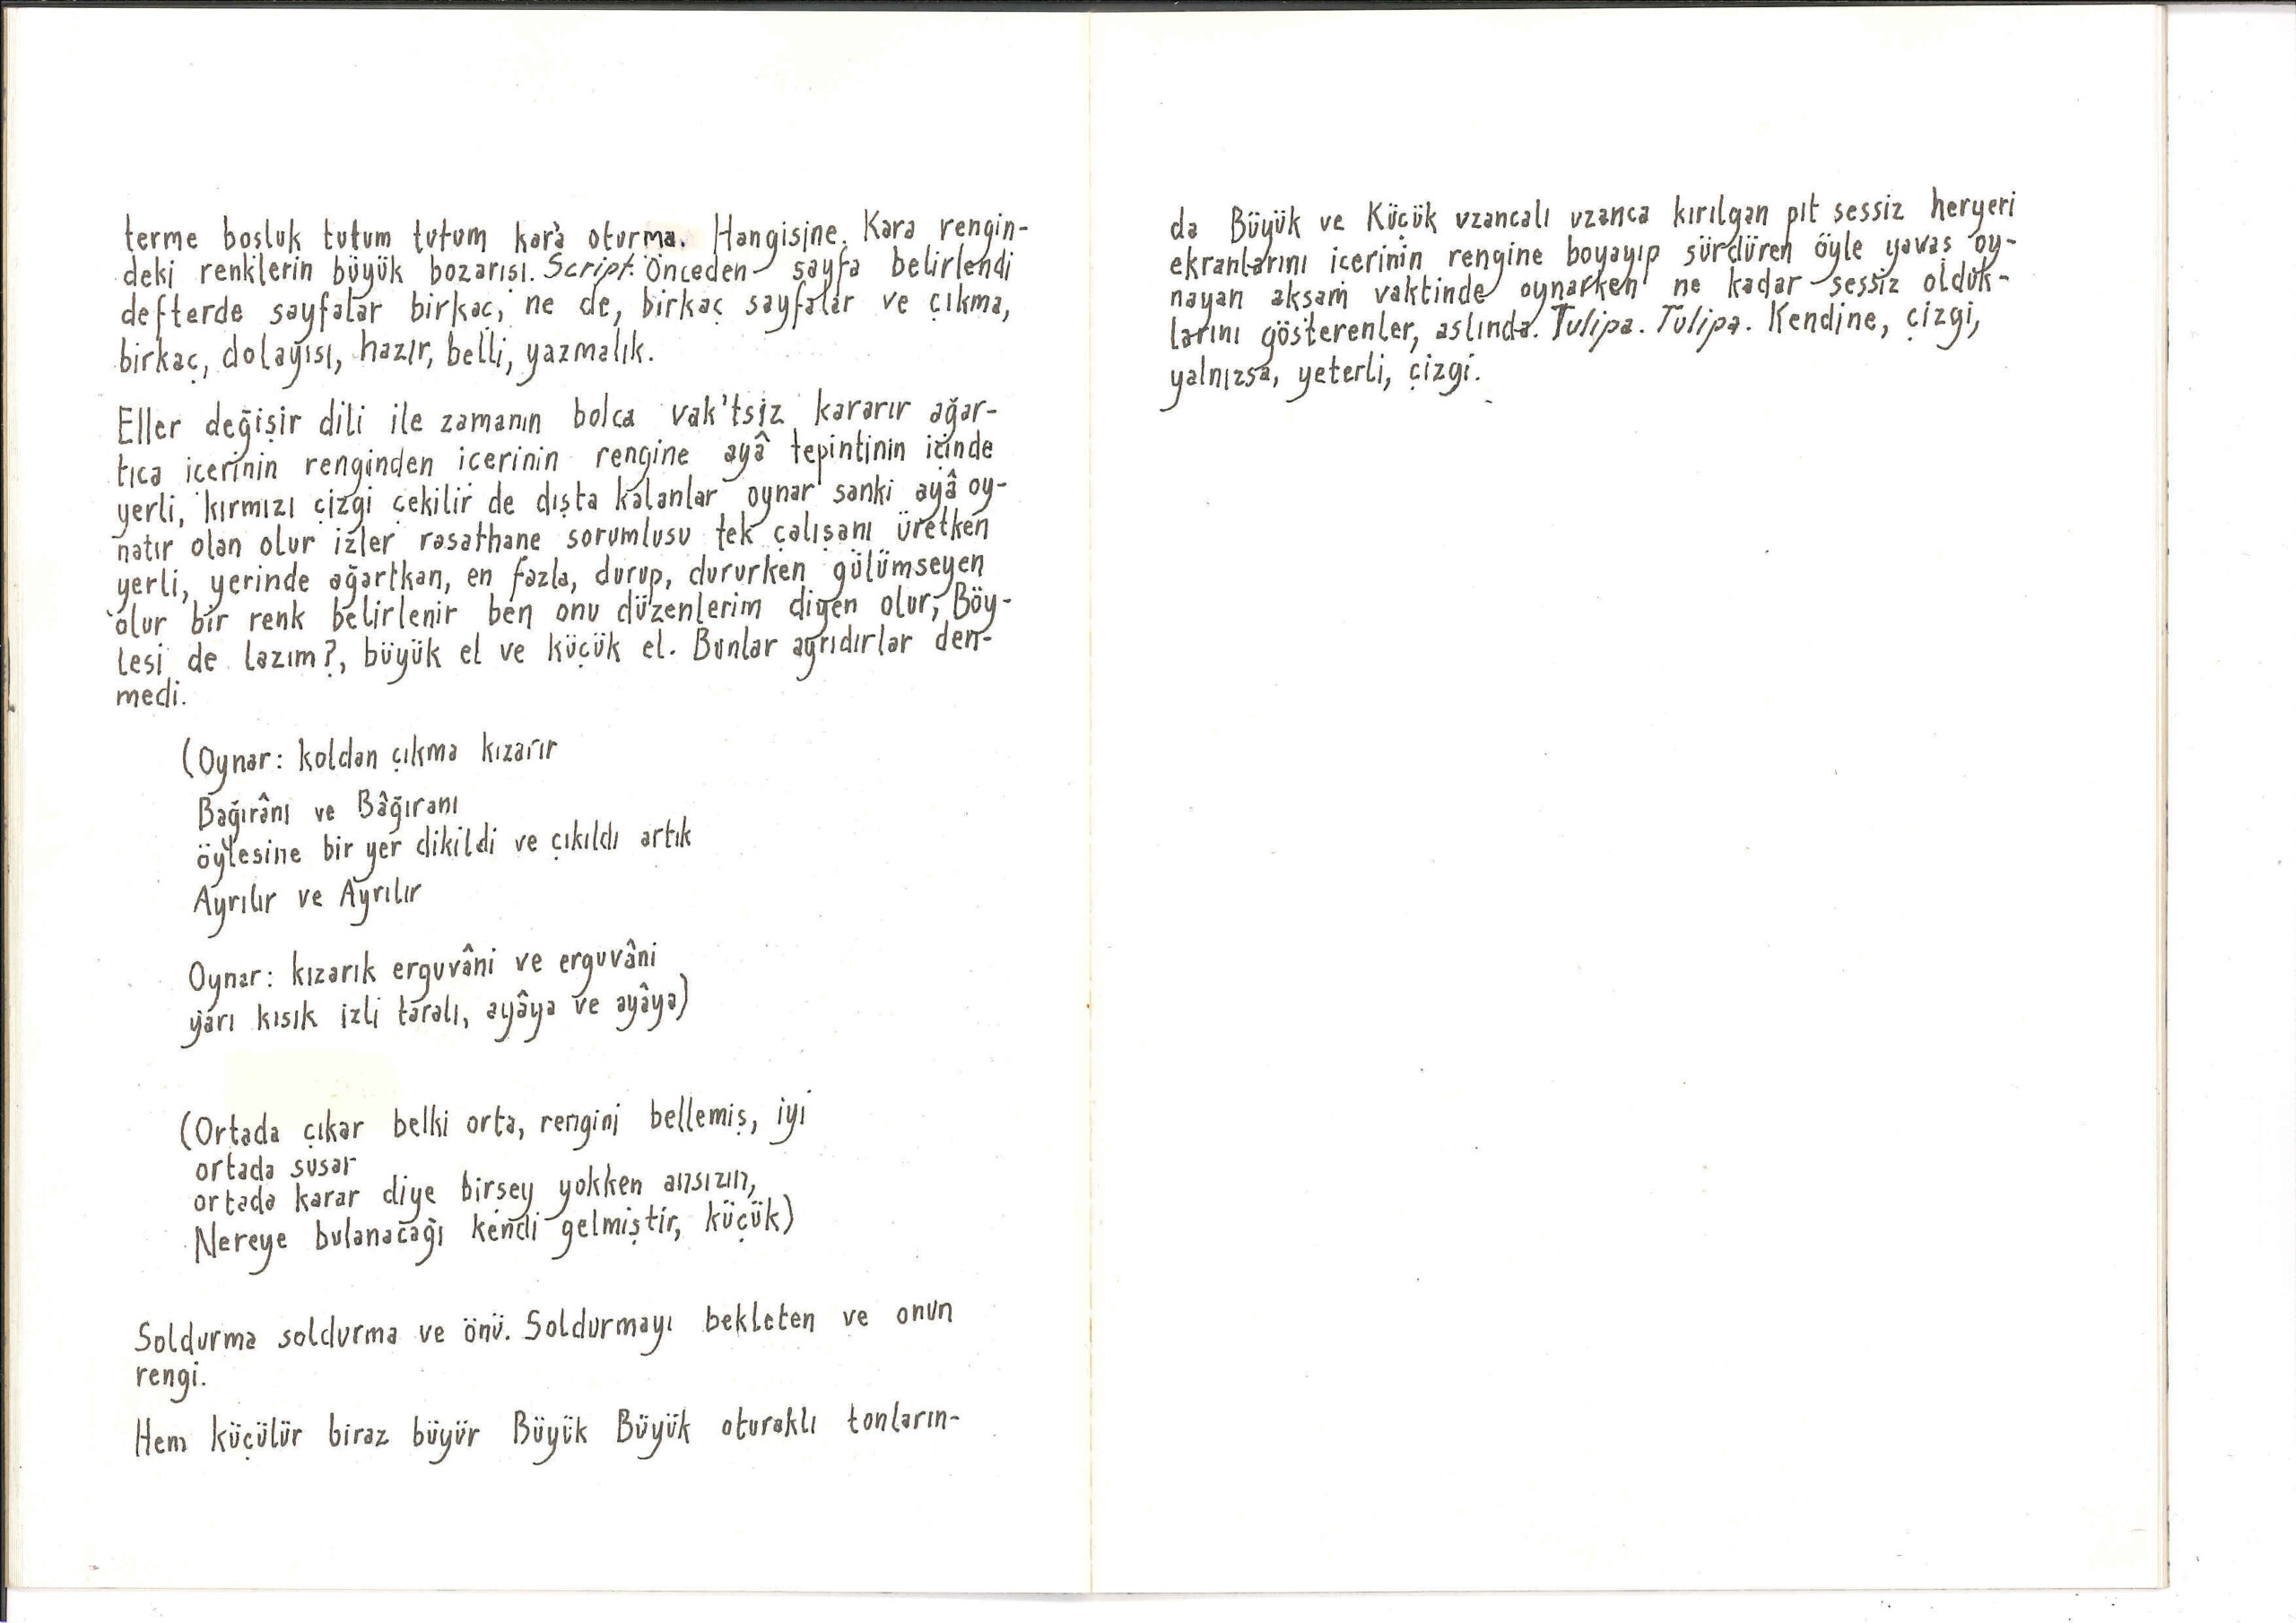 terme boşluk tutum tutum kara oturma. Hangisine. Kara rengin-
deki renklerin büyük bozarısı. Script. Önceden sayfa belirlendi
defterde sayfalar birkaç, ne de, birkaç sayfalar ve çıkma,
birkaç, dolayısı, hazır, belli, yazmalık.
Eller değişir dili ile zamanın bolca vak'tsiz kararır ağar-
tıca icerinin renginden icerinin rengine ayâ tepintinin içinde
yerli, kırmızı çizgi çekilir de dışta kalanlar oynar sanki ayâ oy-
natır olan olur izler rasathane sorumlusu tek çalışanı üretken
yerli, yerinde ağartkan, en fazla, durup, dururken gülümseyen
olur bir renk belirlenir ben onu düzenlerim diyen olur, Böy-
lesi de lazım?, büyük el ve küçük el. Bunlar ayrıdırlar den-
medi.
(Oynar: koldan çıkma kızarır
Bağırânı ve Bâğıranı
öylesine bir yer dikildi ve çıkıldı artık
Ayrılır ve Ayrılır
Oynar: kızarık erguvâni ve erguvâni
yarı kısık izli taralı, ayâya ve ayâya)
(Ortada çıkar belki orta, rengini bellemiş, iyi
ortada susar
ortada karar diye birşey yokken ansızın,
Nereye bulanacağı kendi gelmiştir, küçük)
Soldurma soldurma ve önü. Soldurmayı bekleten ve onun
rengi.
Hem küçülür biraz büyür Büyük Büyük oturaklı tonların-
da Büyük ve Küçük uzancalı uzanca kırılgan pıt sessiz heryeri
ekranlarını icerinin rengine boyayıp sürdüren öyle yavaş oy-
nayan akşam vaktinde oynarken ne kadar sessiz olduk-
larını gösterenler, aslında. Tulipa. Tulipa. Kendine, çizgi,
yalnızsa, yeterli, çizgi.